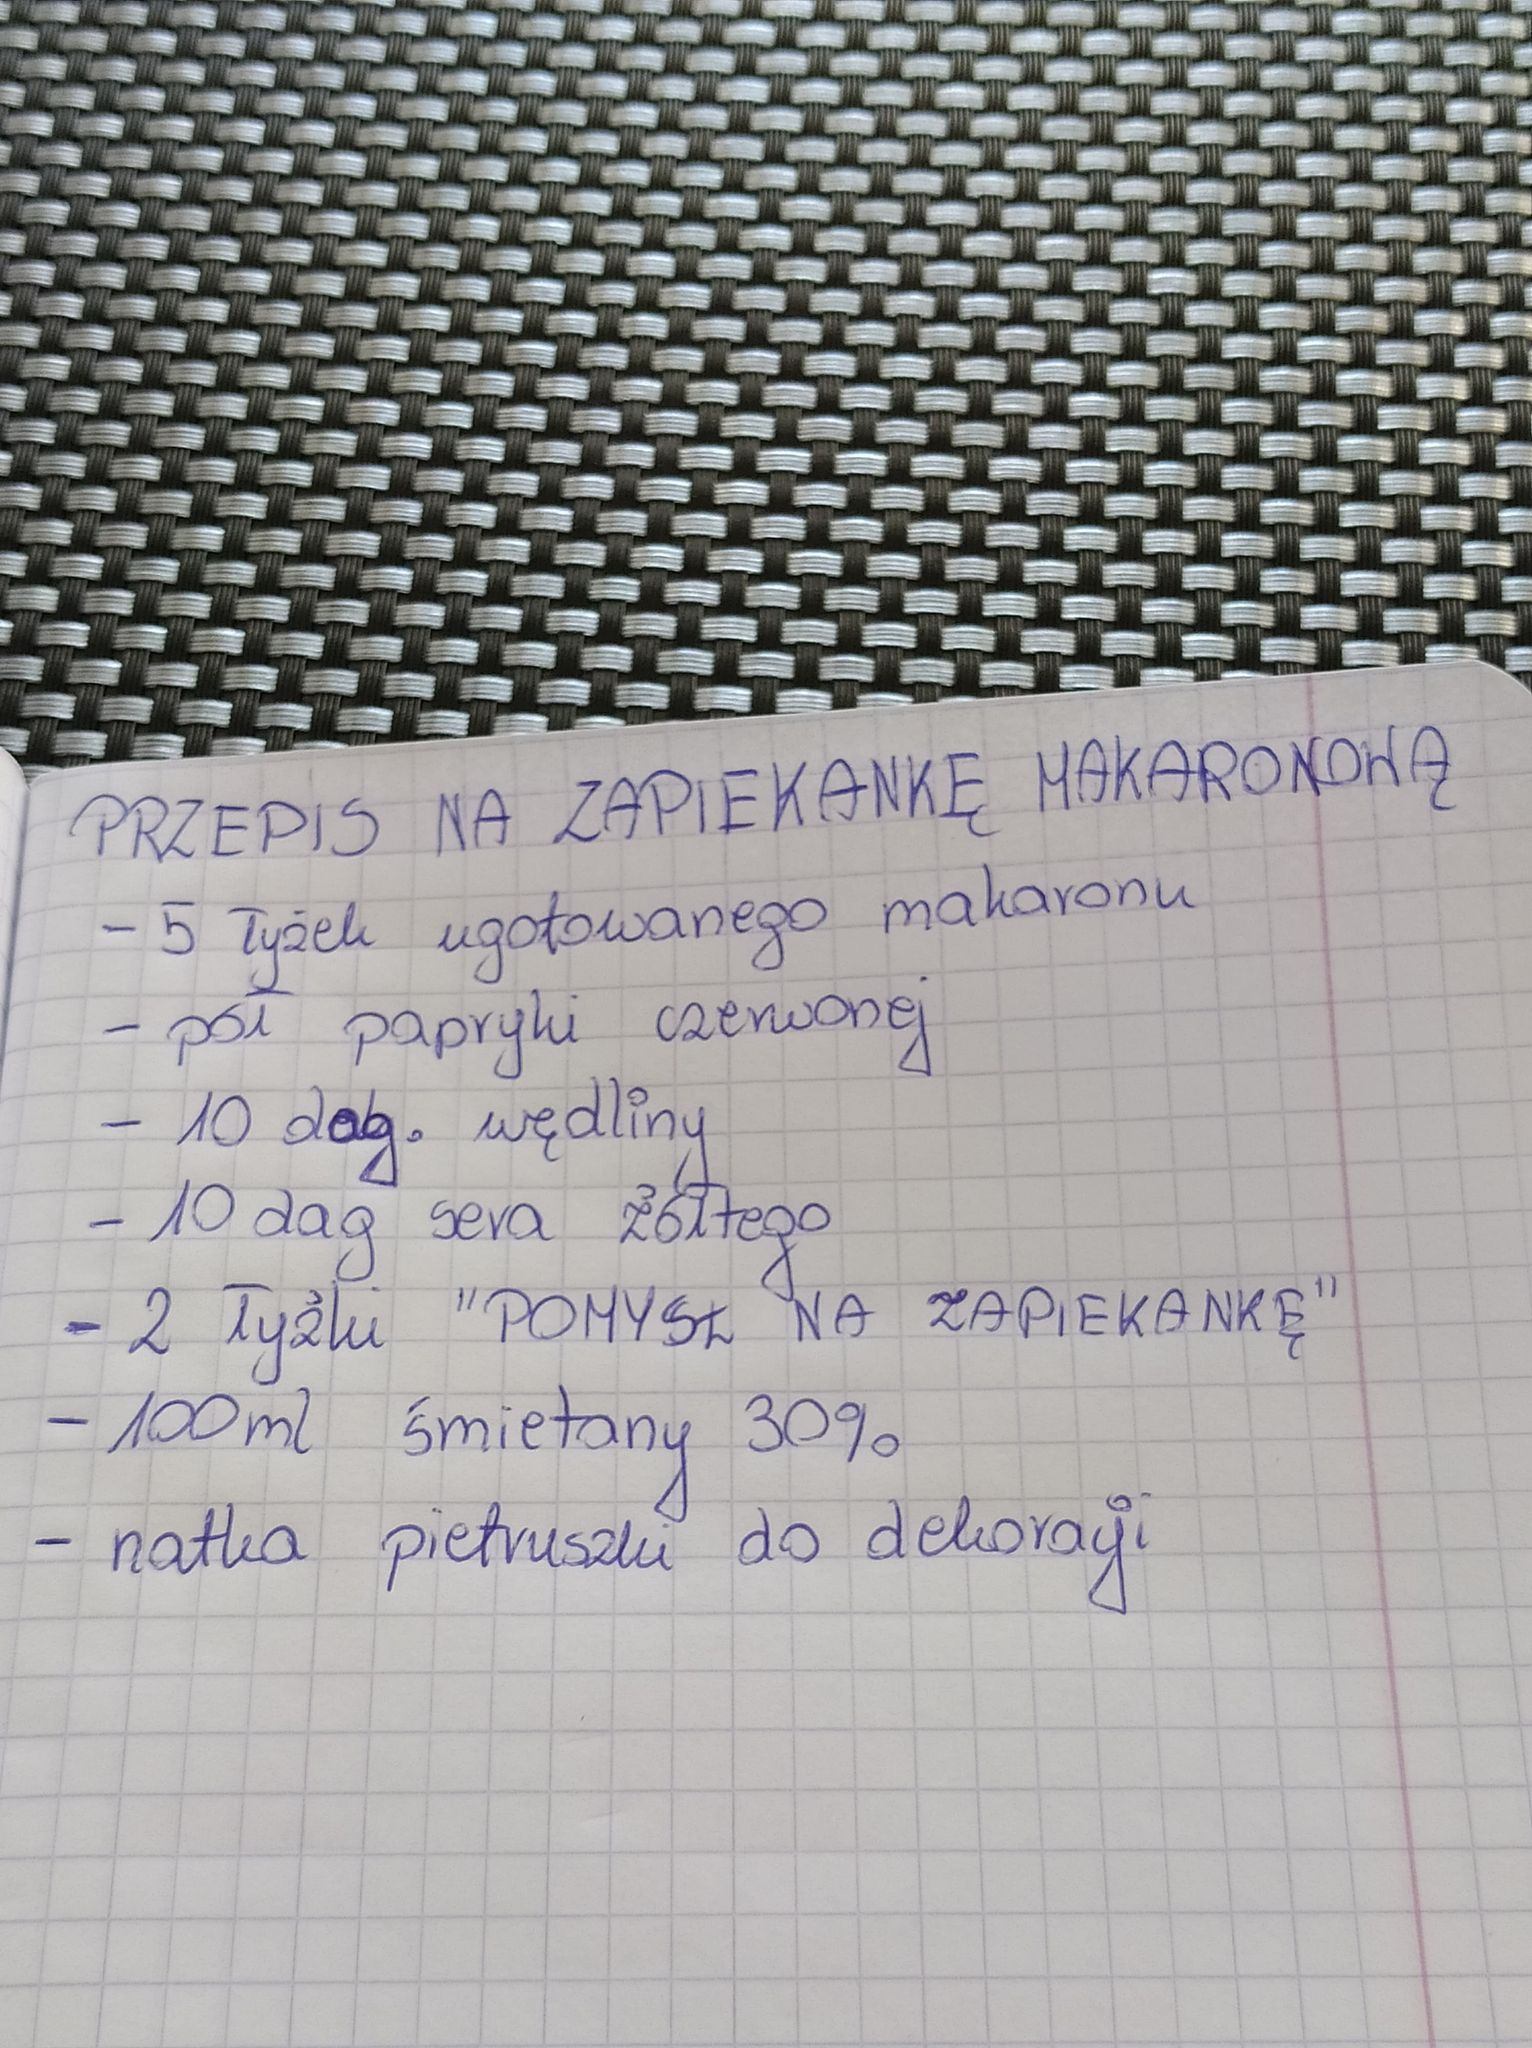 PRZEPIS NA ZAPIEKANKĘ MAKARONOWĄ
- 5 łyżek ugotowanego makaronu
- pół papryki czerwonej
- 10 dag. wędliny
- 10 dag sera żółtego
- 2 łyżki "POMYSŁ NA ZAPIEKANKĘ"
- 100ml śmietany 30%
- natka pietruszki do dekoracji